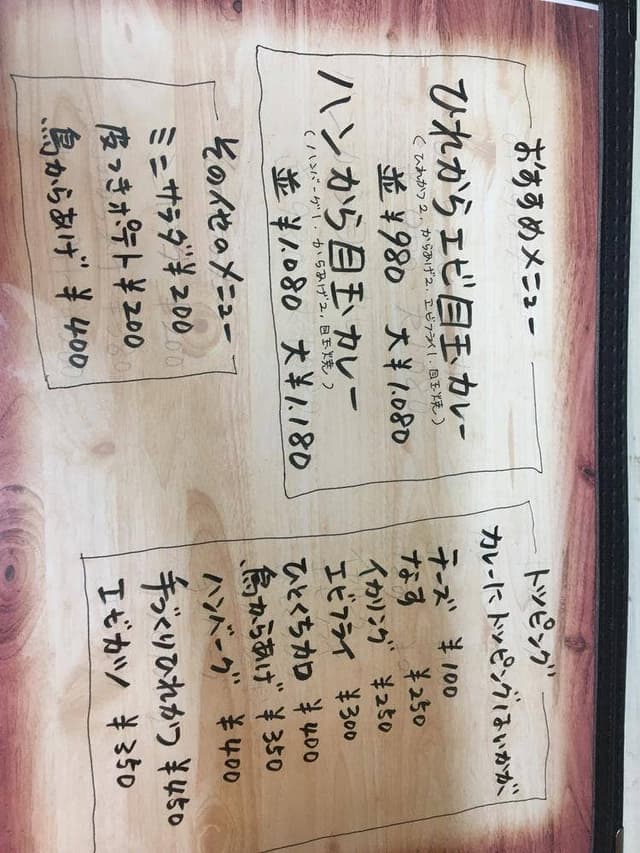 おすすめメニュー
ひれからエビ目玉カレー
(ひれかつ2、からあげ2、エビフライ1、目玉焼)
並 ¥980 大 ¥1.080
ハンから目玉カレー
(ハンバーグ1、からあげ2、目玉焼)
並 ¥1.080 大 ¥1.180
その他のメニュー
ミニサラダ ¥200
皮つきポテト ¥200
鳥からあげ ¥400
トッピング
カレーにトッピングはいかが
チーズ ¥100
なす ¥250
イカリング ¥250
エビフライ ¥300
ひとくちカツ ¥400
鳥からあげ ¥350
ハンバーグ ¥400
手づくりひれかつ ¥450
エビカツ ¥350